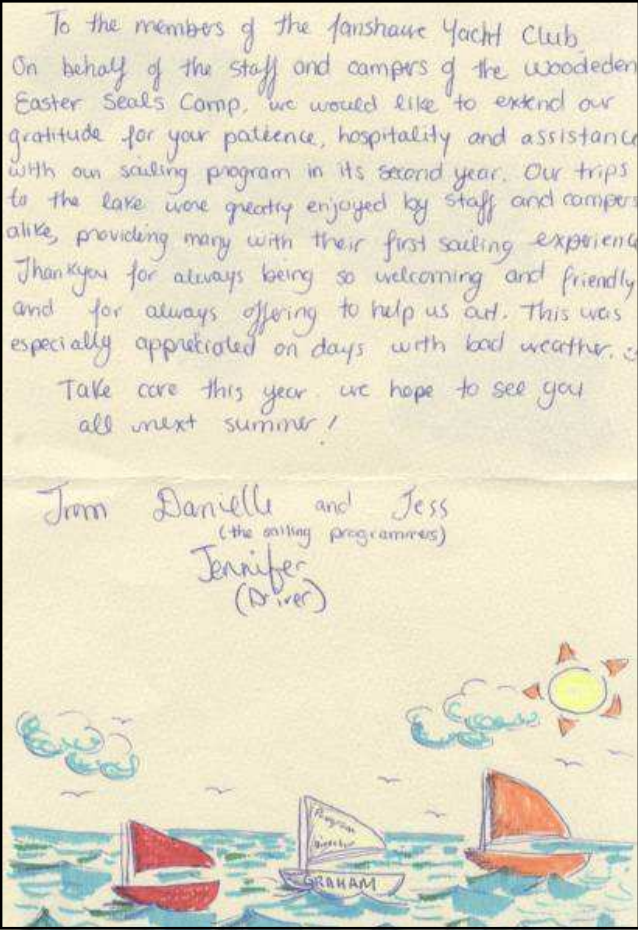 To the members of the Fanshawe Yacht Club
On behalf of the staff and campers of the Woodeden
Easter Seals Camp, we would like to extend our
gratitude for your patience, hospitality and assistance
with our sailing program in its second year. Our trips
to the lake were greatly enjoyed by staff and campers
alike, providing many with their first sailing experience
Thankyou for always being so welcoming and friendly
and for always offering to help us out. This was
especially appreciated on days with bad weather. :)
Take care this year. we hope to see you
all next summer!
From Danielle and Jess
(the sailing programmers)
Jennifer
(Driver)
Program
Director
GRAHAM